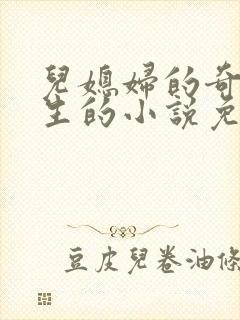 兒媳婦的奇
生的小說免
豆皮兒卷油條